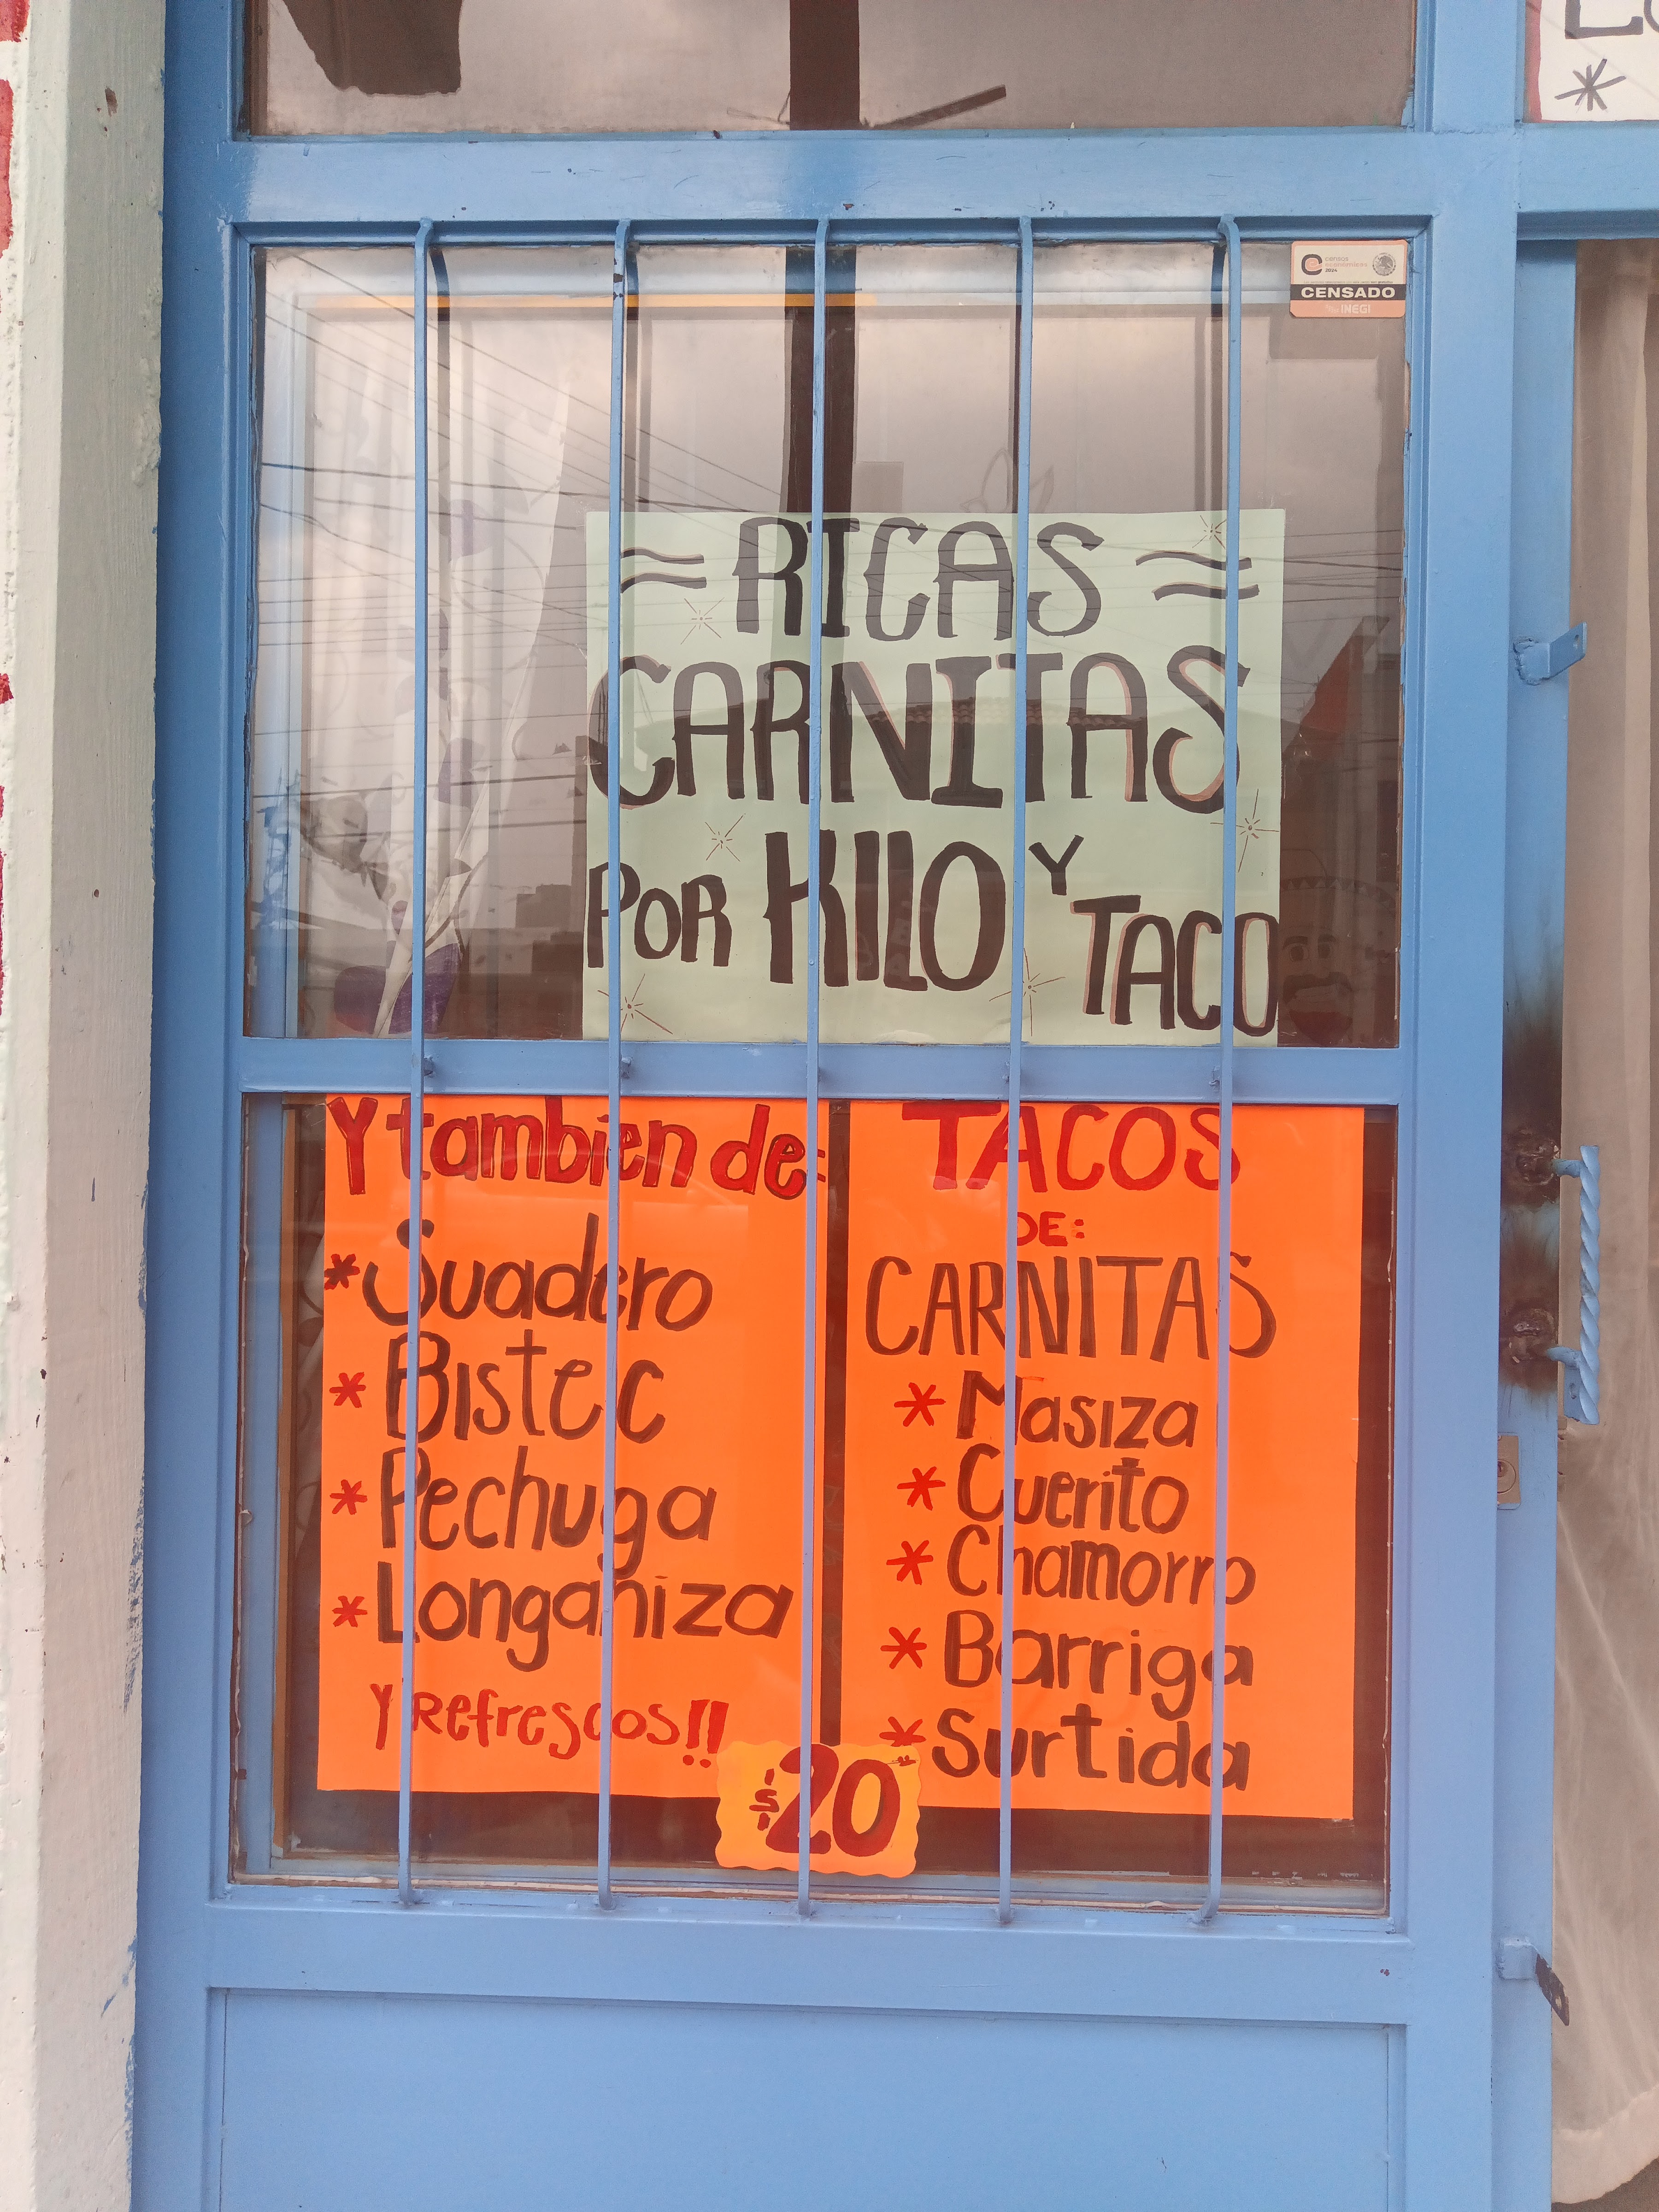 CENSADO
INEGI
RICAS
CARNITAS
POR KILO Y TACO
Y tambien de:
* Suadero
* Bistec
* Pechuga
* Longaniza
Y Refrescos!!
TACOS
DE:
CARNITAS
* Masiza
* Cuerito
* Chamorro
* Barriga
* Surtida
$20